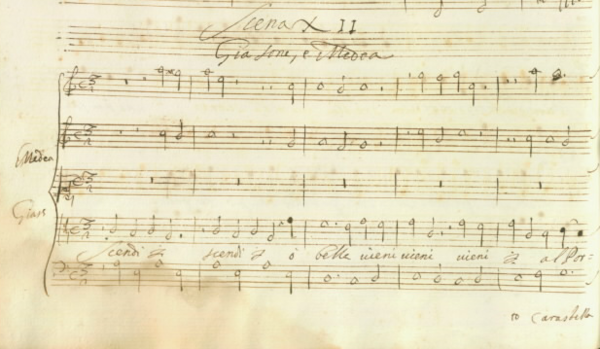 Scena XII
Giasone, e Medea
Medea
Gias
Scendi scendi ò bella vieni vieni vieni al Por=